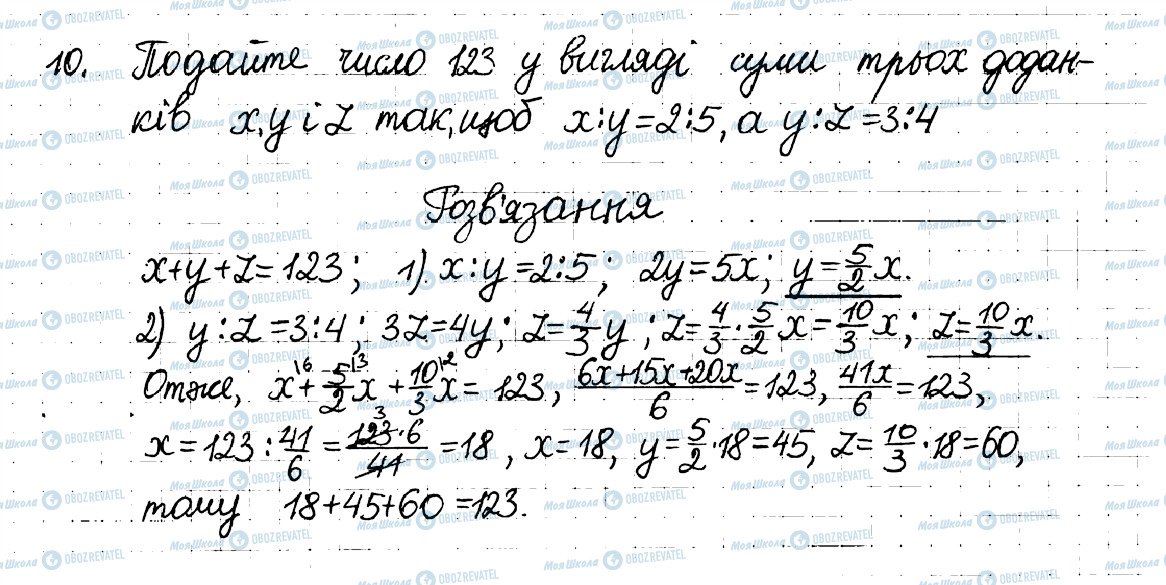 10. Подайте число 123 у вигляді суми трьох додан-
ків x, y і z так, щоб x:y=2:5, а y:z=3:4
Розв'язання
x+y+z=123; 1) x:y=2:5; 2y=5x; y=5/2 x.
2) y:z=3:4; 3z=4y; z=4/3 y; z=4/3·5/2 x=10/3 x; z=10/3 x.
Отже, x|6 + 5/2 x|3 + 10/3 x|2 = 123, (6x+15x+20x)/6=123, 41x/6=123,
x=123:41/6=(123·6)/41 3 =18, x=18, y=5/2·18=45, z=10/3·18=60,
тому 18+45+60=123.
Моя Школа OBOZREVATEL